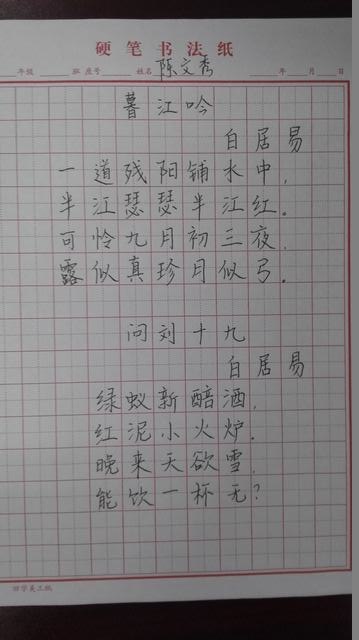 硬笔书法纸
年级 班 座号 姓名 陈文秀 年 月 日
暮江吟
白居易
一道残阳铺水中,
半江瑟瑟半江红。
可怜九月初三夜,
露似真珍月似弓。
问刘十九
白居易
绿蚁新醅酒,
红泥小火炉.
晚来天欲雪,
能饮一杯无?